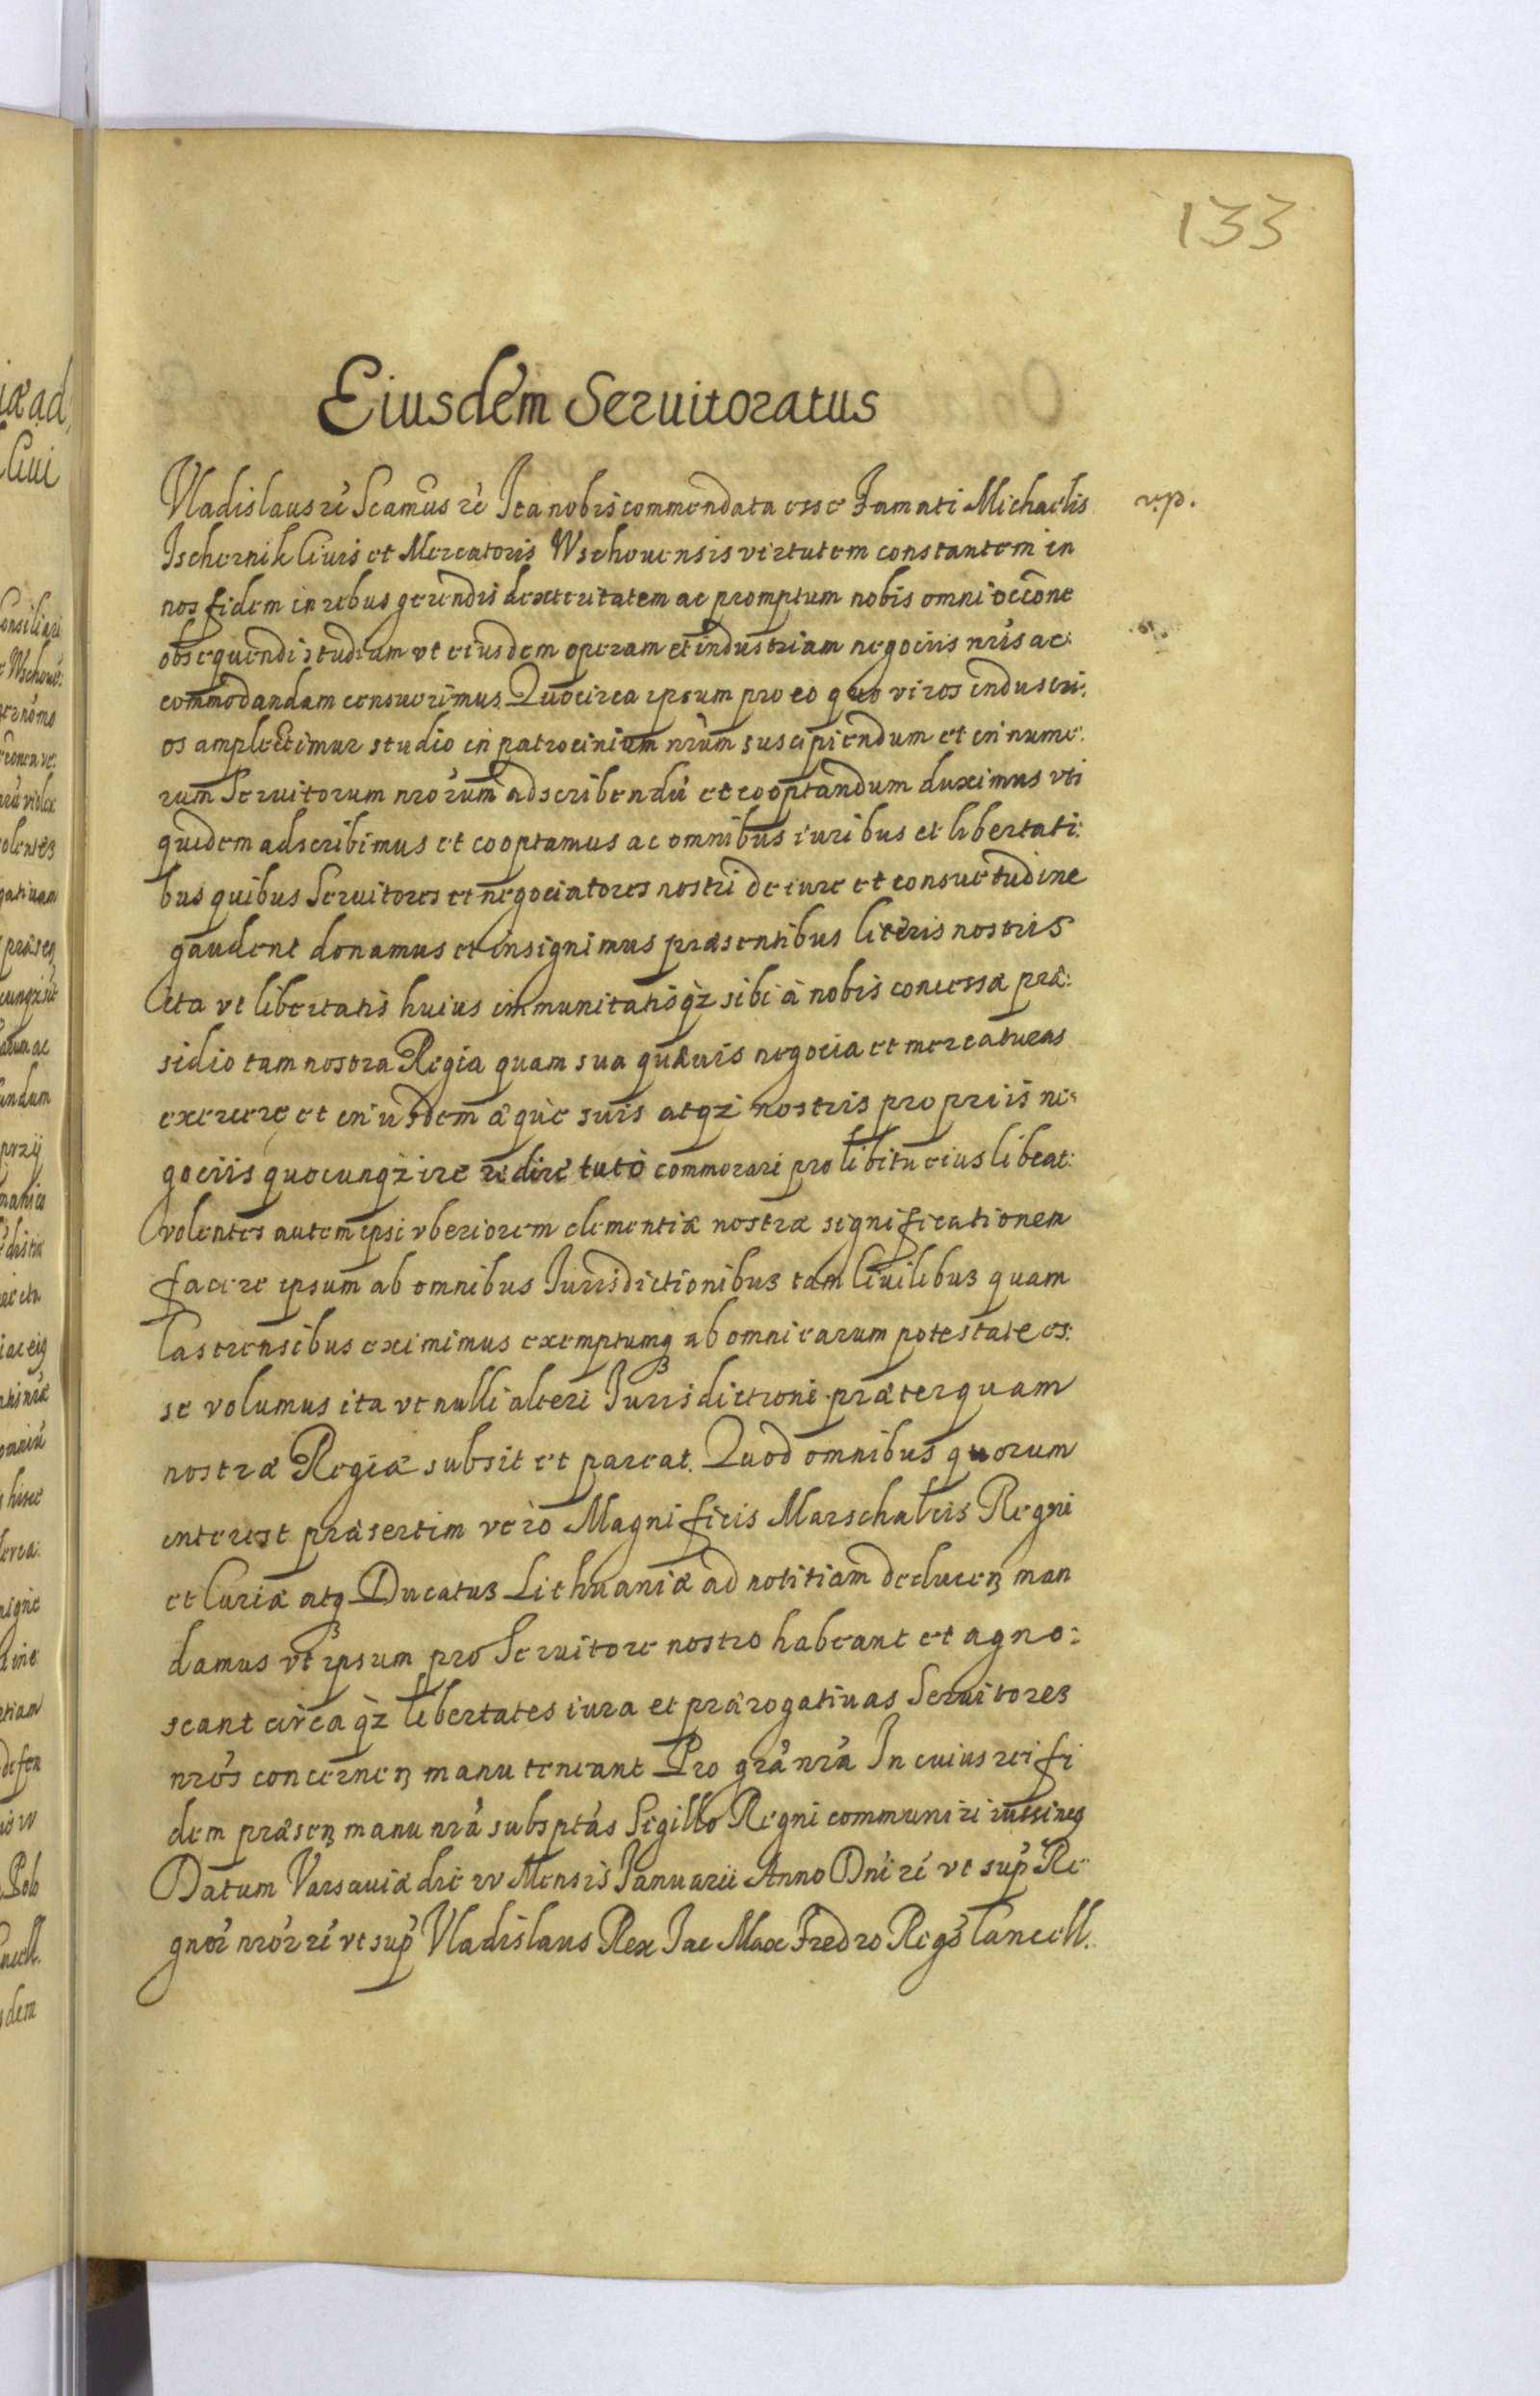 133
Eiusdem Seruitoratus
Vladislaus rẻ Scamus rẻ Ita nobis commendata esse Famati Michaelis
r.p.
Ischernik Ciuis et Mercatoris Wschouensis virtutem constantem in
nos fidem in rebus gerendis dexteritatem ac promptum nobis omni occone
obsequendi studium vt eiusdem operam et industriam negociis nris ac:
commodandam censuerimus. Quocirca ipsum pro eo quo viros industri:
os amplectimur studio in patrocinium nrum suscipiendum et in nume:
rum Seruitorum nrorum adscribendu et cooptandum duximus vti
quidem adscribimus et cooptamus ac omnibus iuribus et libertati:
bus quibus Seruitores et negociatores nostri de iure et consuetudine
gaudent donamus et insignimus præsentibus literis nostris
ita vt libertatis huius immunitatisqz sibi à nobis concessæ præ:
sidio tam nostra Regia quam sua quæuis negocia et mercaturas
exercere et in iisdem æque suis atqz nostris propriis ne:
gociis quocunqz ire redire tuto commorari pro libitu eius libeat:
volentes autem ipsi vberiorem clementiæ nostræ significationem
facere ipsum ab omnibus Iurisdictionibus tam Ciuilibus quam
Castrensibus eximimus exemptumq ab omni earum potestate es:
se volumus ita vt nulli alteri Iurisdictioni præterquam
nostræ Regiæ subsit et pareat. Quod omnibus quorum
interest præsertim vero Magnificis Marschalcis Regni
et Curiæ atq Ducatus Lithuaniæ ad notitiam deducen man
damus vt ipsum pro Seruitore nostro habeant et agno:
scant circa qz libertates iura et prærogatiuas Seruitores
nros concernen manu teneant Pro gra nra In cuius rei fi
dem præsen manu nra subsptas Sigillo Regni communiri iussimus
Datum Varsauiæ die xv Mensis Ianuarii Anno Dni rẻ vt sup Re
gnor nror rẻ vt sup Vladislaus Rex Iac Max Fredro Regs Cancell.